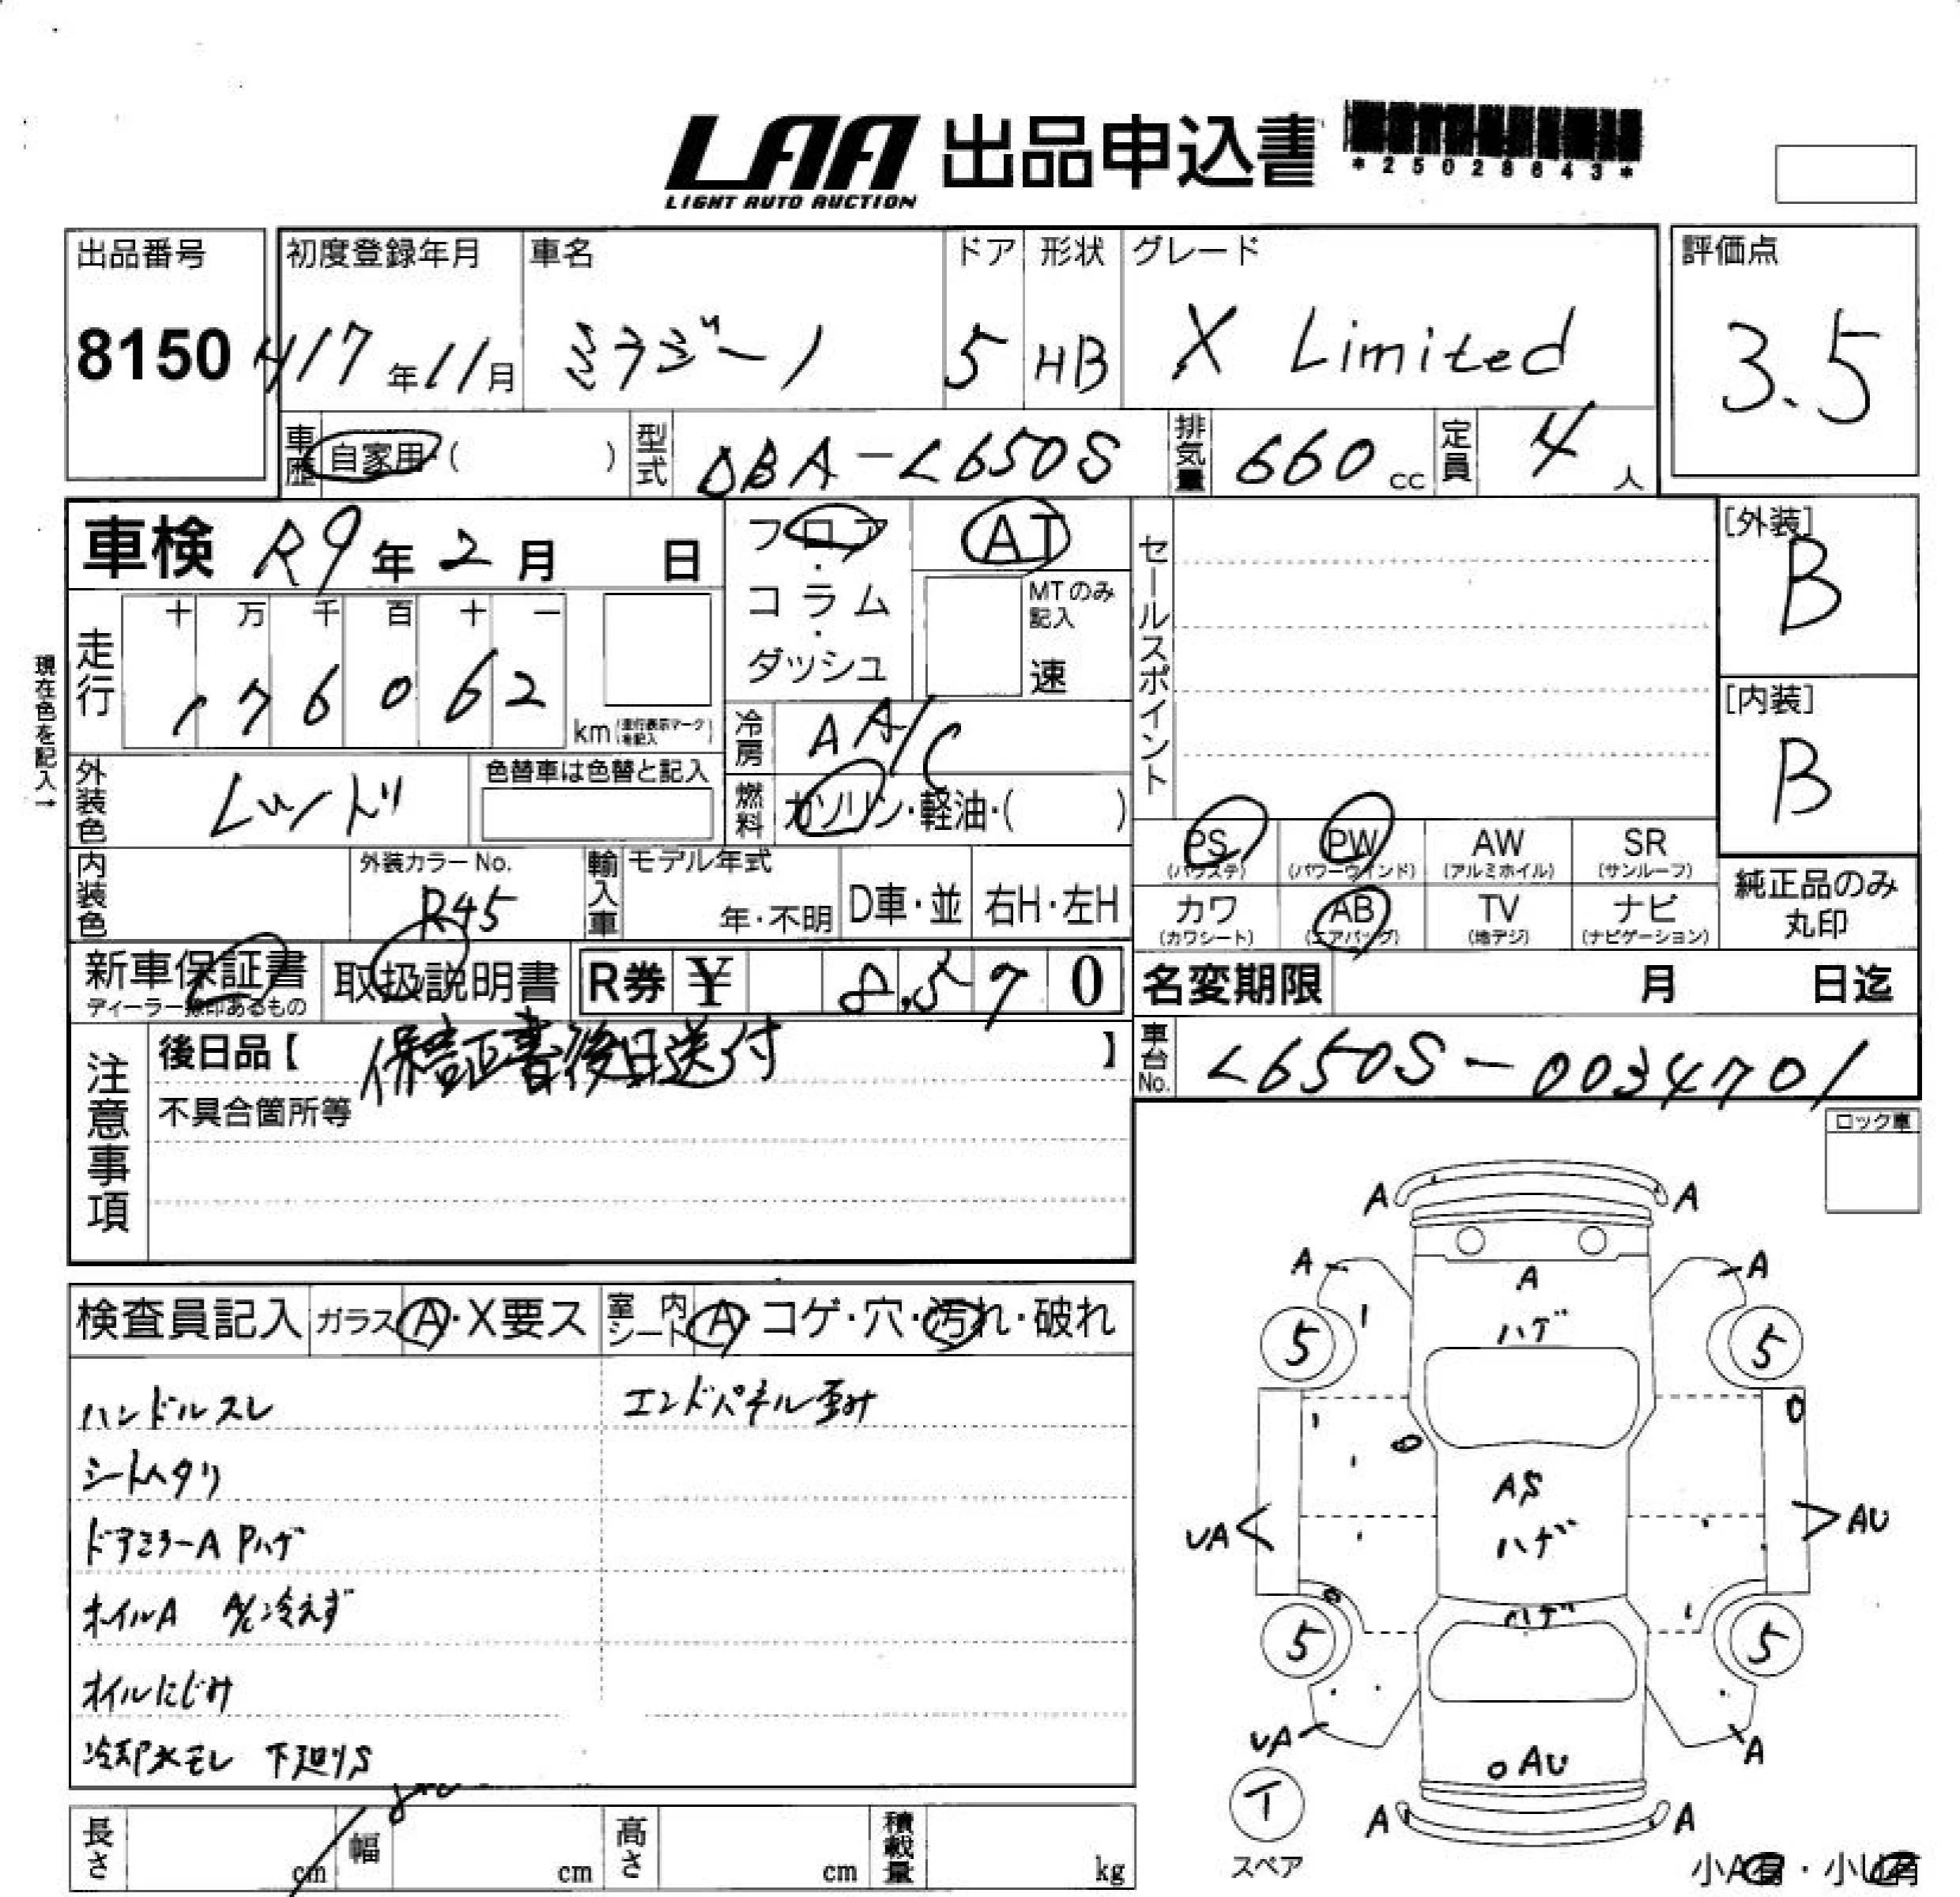 LAA 出品申込書
LIGHT AUTO AUCTION
*25028643*
出品番号 初度登録年月 車名 ドア 形状 グレード 評価点
8150 H17年11月 ミラジーノ 5 HB X Limited 3.5
車歴 自家用( ) 型式 DBA-L650S 排気量 660cc 定員 4人
車検 R9年2月 日
フロア・コラム・ダッシュ
AT
MTのみ記入
速
セールスポイント
[外装]
B
[内装]
B
現在色を記入→
走行 十 万 千 百 十 一
176062 km (走行表示マークを記入)
冷房 AA/C
外装色 レッド
色替車は色替と記入
燃料 ガソリン・軽油・( )
PS PW AW SR
(パワステ) (パワーウインド) (アルミホイル) (サンルーフ)
内装色
外装カラーNo.
R45
輸入車 モデル年式
年・不明 D車・並 右H・左H
カワ AB TV ナビ
(カワシート) (エアバッグ) (地デジ) (ナビゲーション)
純正品のみ
丸印
新車保証書
取扱説明書 R券 ¥ 8,570
名変期限 月 日迄
注意事項
後日品【 保証書後日送付 】
不具合箇所等
車台No. L650S-0034701
ロック車
検査員記入 ガラス A・X要ス 室内シート A・コゲ・穴・汚れ・破れ
ハンドルスレ エンドパネル歪み
シートヘタリ
ドアミラーA Pハゲ
オイルA A/C冷えず
オイルにじみ
冷却水モレ 下廻りS
長さ cm 幅 cm 高さ cm 積載量 kg
A A
A A A
ハゲ
5 5
AS
UA ハゲ AU
ハゲ
5 5
UA A
AU
T
A A
スペア
小A有・小U有